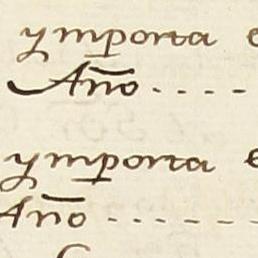 ymporta e
Año....
ymporta e
Año - - - - -